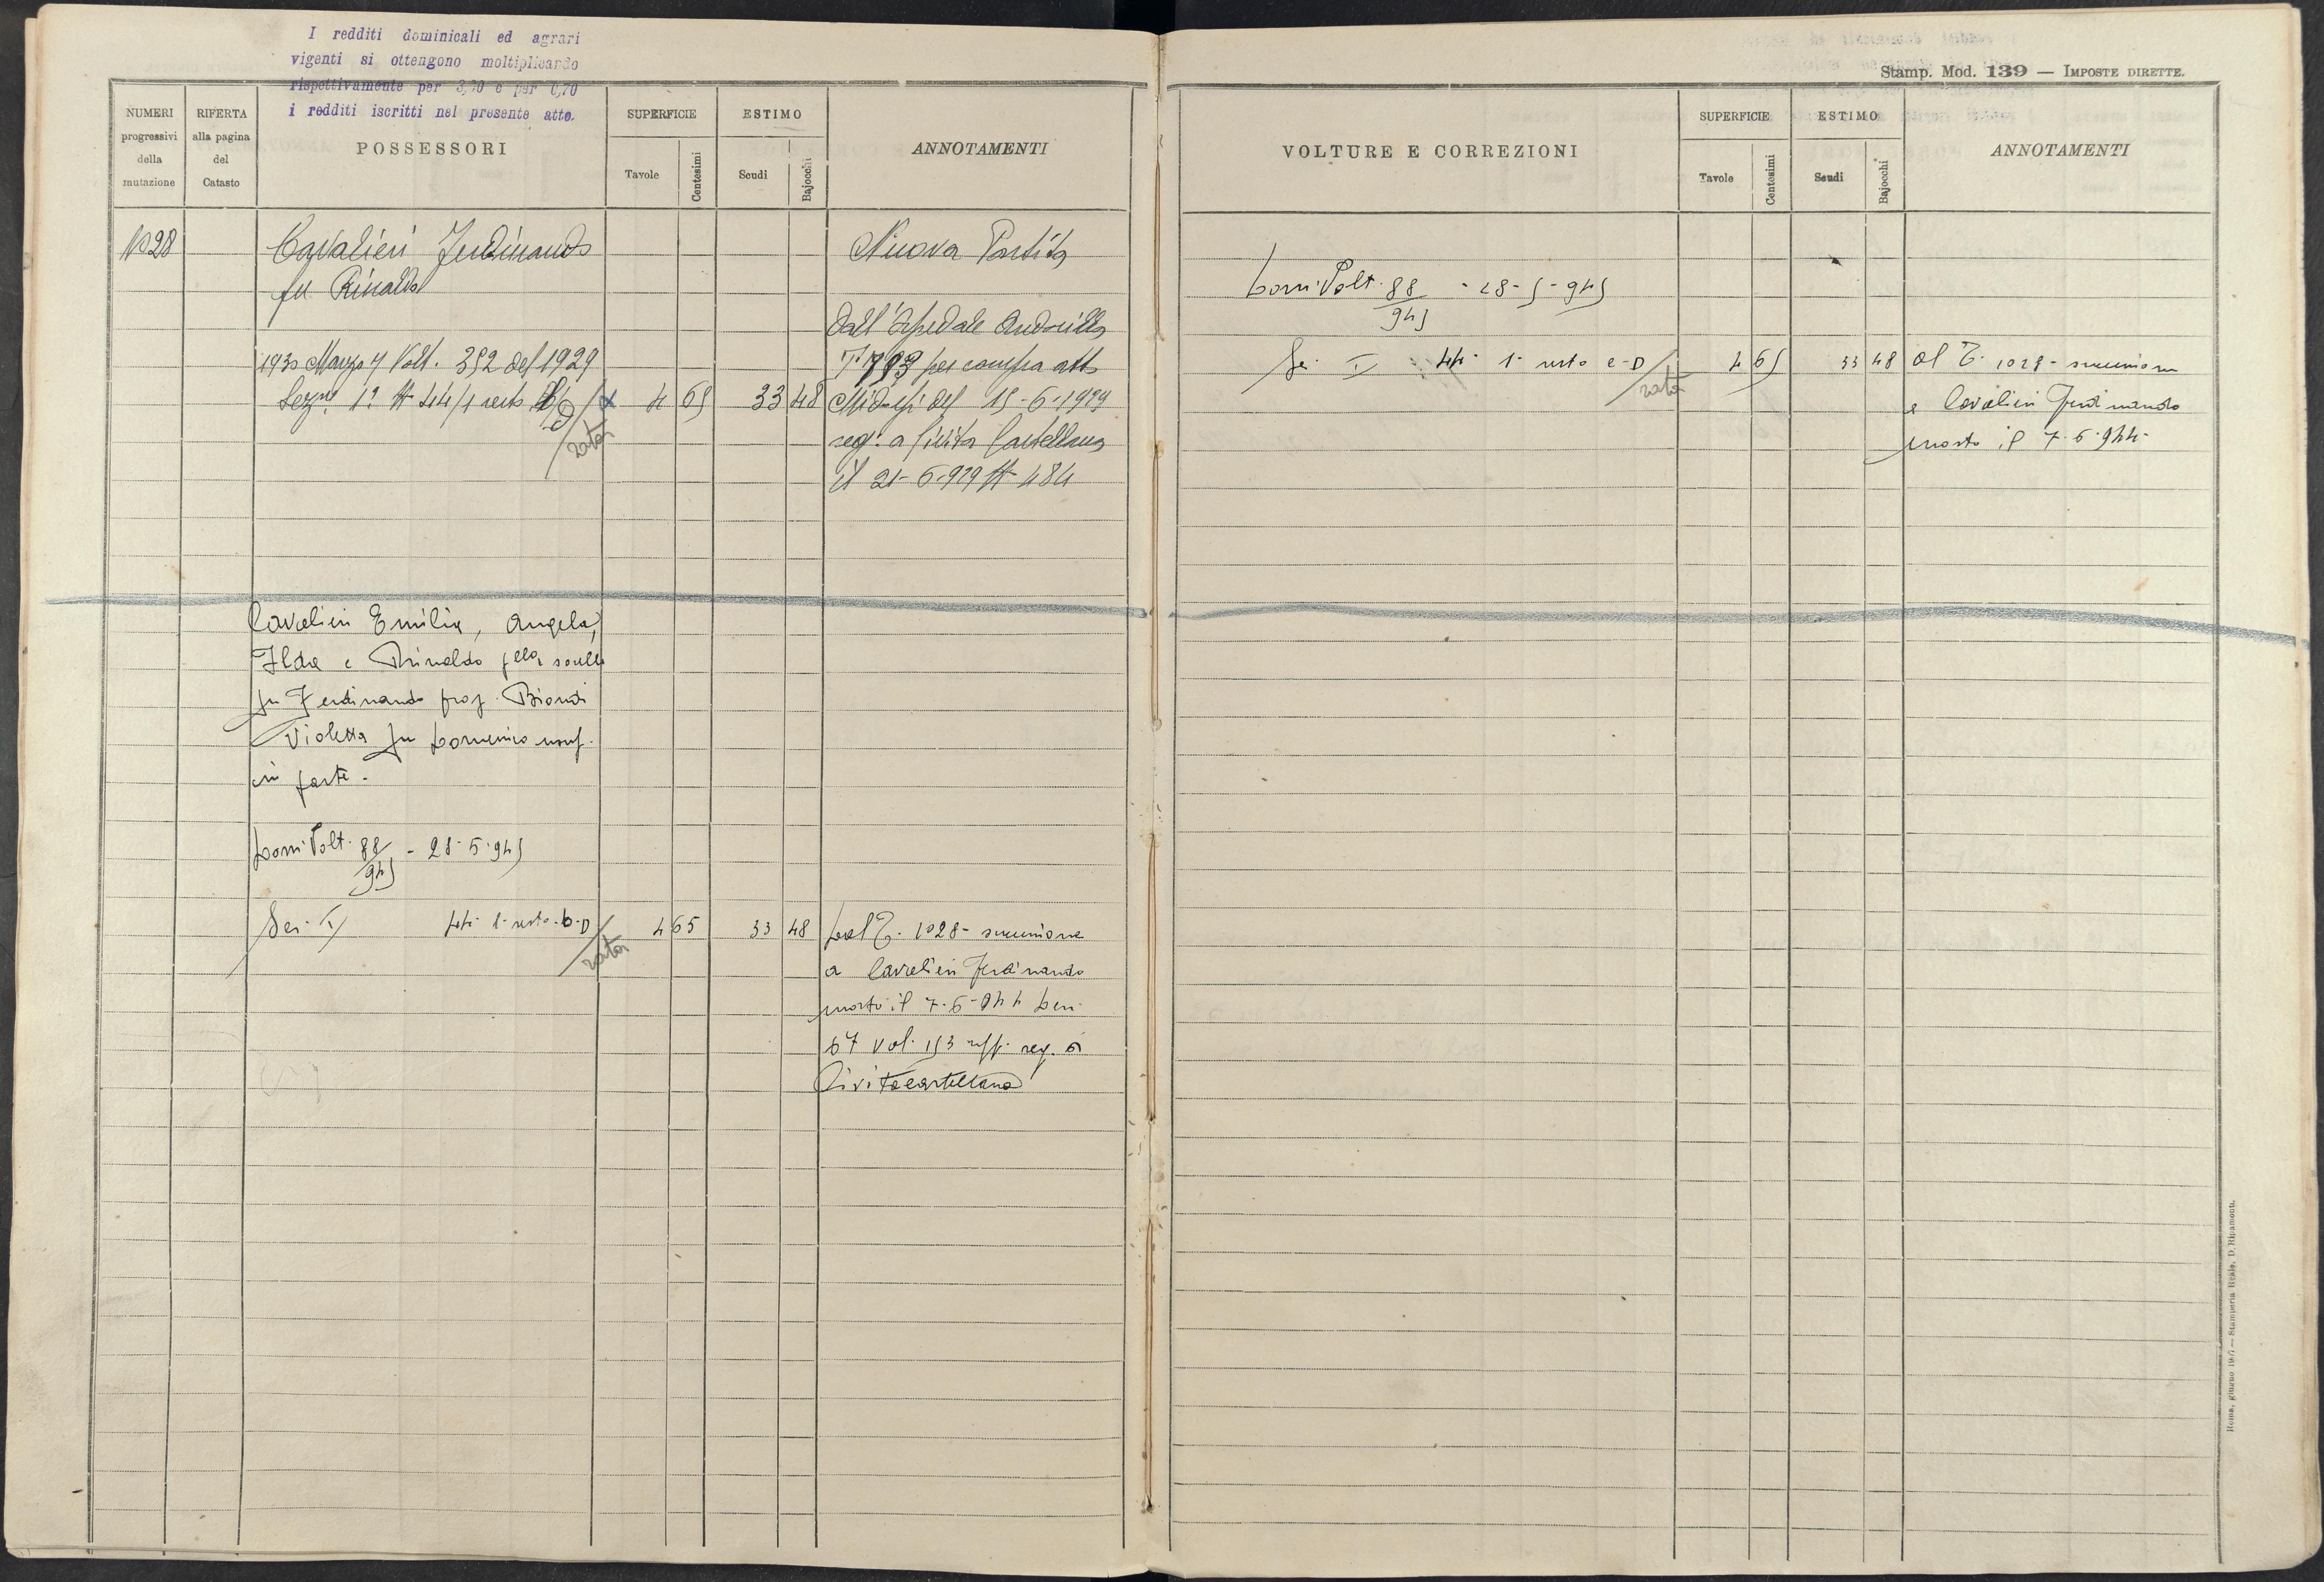 I redditi dominicali ed agrari
vigenti si ottengono moltiplicando
rispettivamente per 3,70 e per 0,70
i redditi iscritti nel presente atto.
NUMERI progressivi della mutazione
RIFERTA alla pagina del Catasto
POSSESSORI
SUPERFICIE
Tavole
Centesimi
ESTIMO
Scudi
Bajocchi
ANNOTAMENTI
1028
Cavalieri Ferdinando
fu Rinaldo
1930 Marzo 7 Volt. 352 del 1929
Sezne 1a N 44/1 resto
rata
4 65 33 48
Nuova Partita
Dall'Ospedale
T 793 per compra atto
del 15-6-1929
reg. a Civita Castellana
il 21-6-929 N 484
Cavalieri Emilia, Angela,
Ilda e Rinaldo flla sorelle
fu Ferdinando prop. Biondi
Violetta fu Domenico usuf.
in parte.
Dom. Volt. 88/945 - 28-5-945
Sez. I 44- 1- resto-b-D
rata
4 65 33 48
Dal T. 1028- successione
a Cavalieri Ferdinando
morto il 7-6-944 Den.
67 vol. 153 uff. reg. di
Civitacastellana
Stamp. Mod. 139 — IMPOSTE DIRETTE.
VOLTURE E CORREZIONI
SUPERFICIE
Tavole
Centesimi
ESTIMO
Scudi
Bajocchi
ANNOTAMENTI
Dom. Volt. 88/945 - 28-5-945
Sez. I 44- 1- resto e-D
rata
4 65 33 48
Al T. 1028- successione
a Cavalieri Ferdinando
morto il 7-6-944-
Roma, giugno 1907 — Stamperia Reale, D. Ripamonti.